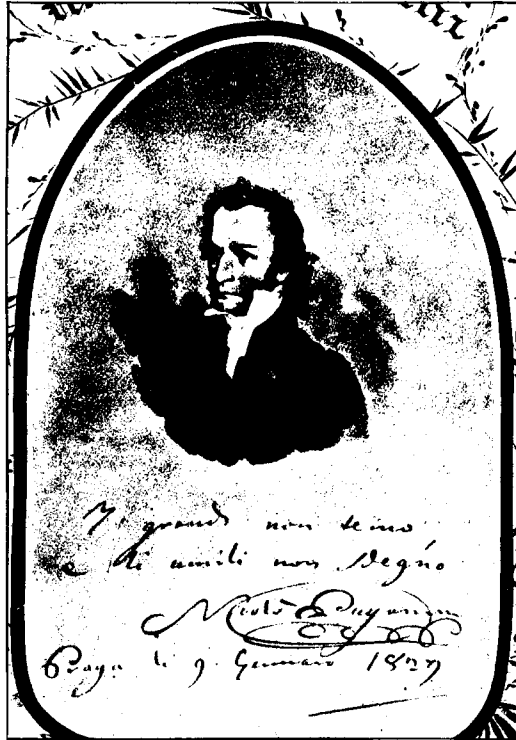 I grandi non temo
e li umili non sdegno
Nicolò Paganini
Praga li 9. Gennaro 1829